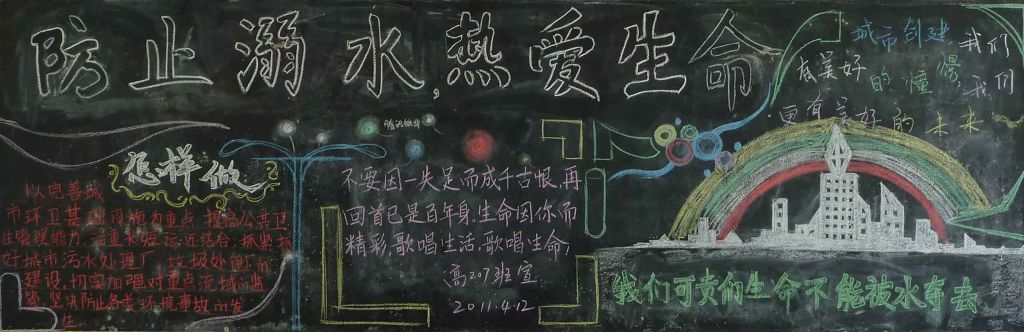 防止溺水,热爱生命
城市创建 我们
有美好 的憧憬,我们
更有美好的未来
怎样做
以完善城
市环卫基础设施为重点,提高公共卫
生管理能力,注重长短远近结合,抓紧抓
好城市污水处理厂 垃圾处理厂的
建设,切实加强对重点流域的监
督,坚决防止各类环境事故的发
生。
不要因一失足而成千古恨,再
回首已是百年身.生命因你而
精彩,歌唱生活,歌唱生命!
高207班宣
2011.4.12
我们可贵的生命不能被水夺去